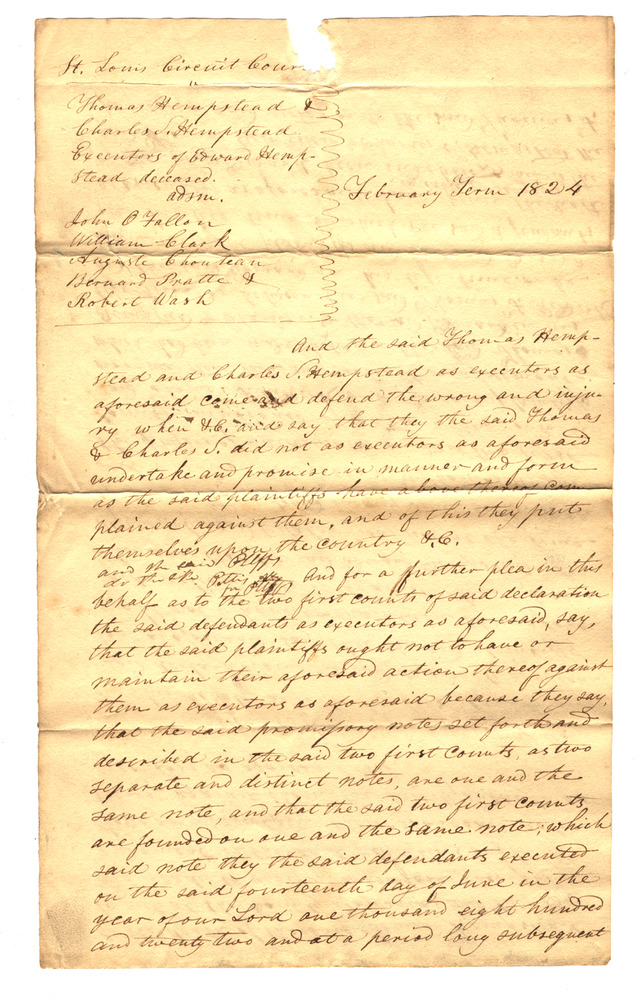 St. Louis Circuit Cour
Thomas Hempstead &
Charles S. Hempstead
Executors of Edward Hemp-
stead deceased.
adsm.
February Term 1824
John O'Fallon
William Clark
Auguste Chouteau
Bernard Pratte &
Robert Wash
And the said Thomas Hemp-
stead and Charles S. Hempstead as executors as
aforesaid come and defend the wrong and inju-
ry when &C. and say that they the said Thomas
& Charles S. did not as executors as aforesaid
undertake and promise in manner and form
as the said plaintiffs have above thereof com
plained against them, and of this they put
themselves upon the country &.C.
and the said Pltffs
do the like Pettis
for Pltffs
And for a further plea in this
behalf as to the two first counts of said declaration
the said defendants as executors as aforesaid, say,
that the said plaintiffs ought not to have or
maintain their aforesaid action thereof against
them as executors as aforesaid because they say,
that the said promissory notes set forth and
described in the said two first counts, as two
separate and distinct notes, are one and the
same note, and that the said two first counts
are founded on one and the same note; which
said note they the said defendants executed
on the said fourteenth day of June in the
year of our Lord one thousand eight hundred
and twenty two and at a period long subsequent